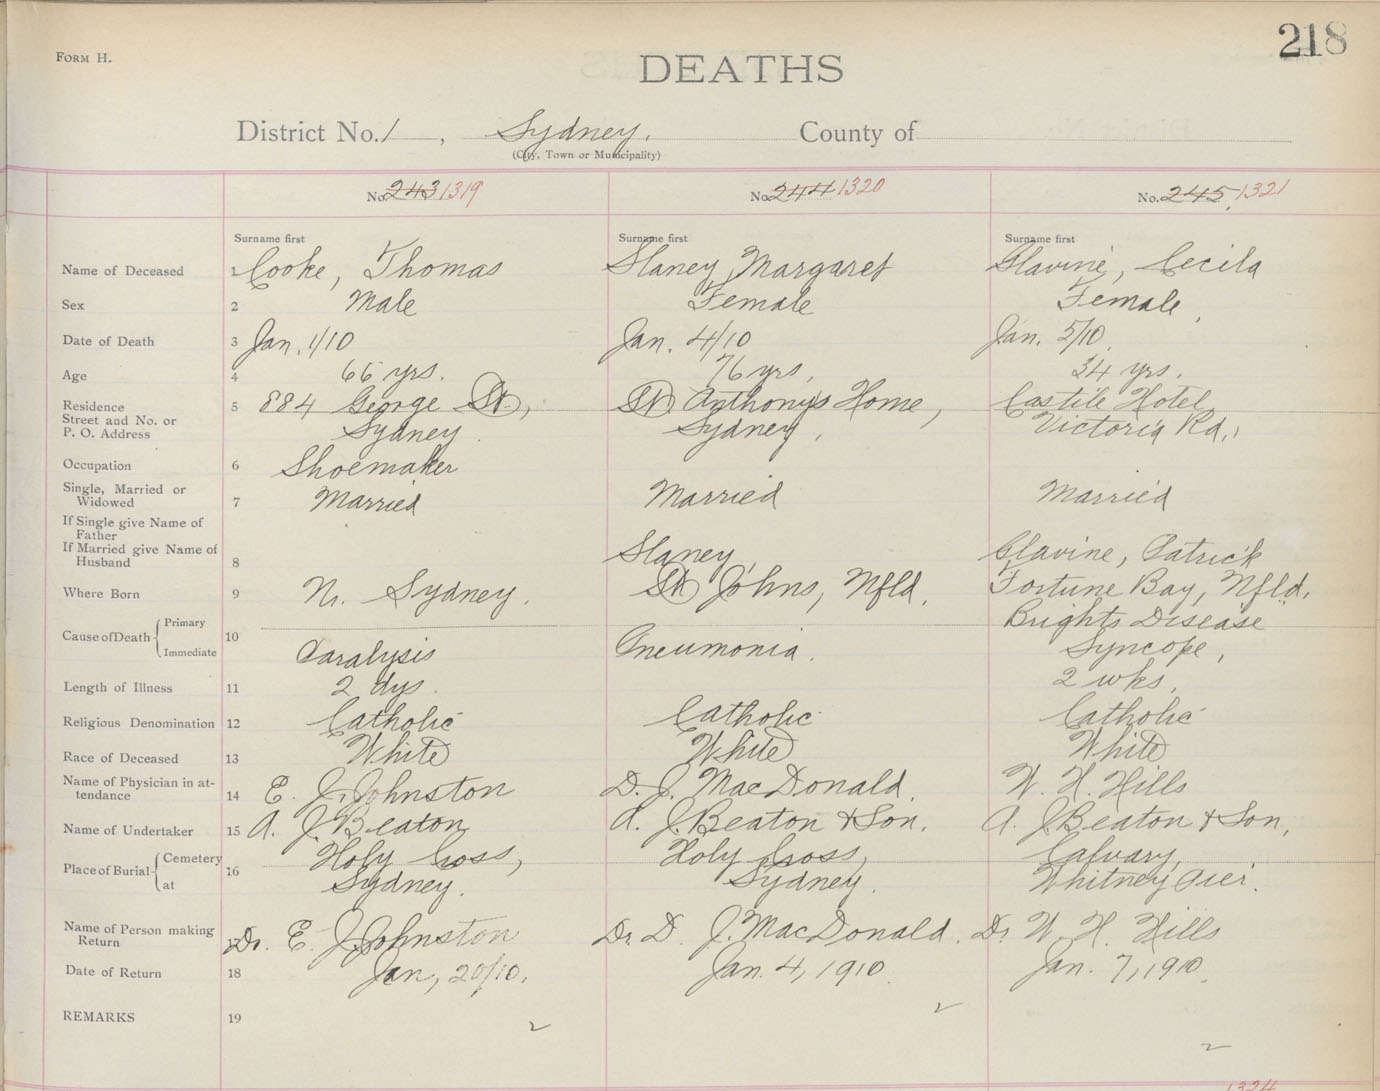 218
FORM H.
DEATHS
District No. 1, Sydney. County of
(City, Town or Municipality)
No. 243 1319 No. 244 1320 No. 245, 1321
Surname first Surname first Surname first
Name of Deceased 1 Cooke, Thomas Slaney, Margaret Glavine, Cecila
Sex 2 Male Female Female,
Date of Death 3 Jan. 1/10 Jan. 4/10 Jan. 5/10.
Age 4 66 yrs. 76 yrs, 34 yrs.
Residence 5 884 George St, St Anthonys Home, Castile Hotel
Street and No. or
P. O. Address Sydney. Sydney, Victoria Rd.,
Occupation 6 Shoemaker
Single, Married or
Widowed 7 Married Married Married
If Single give Name of
Father
If Married give Name of
Husband 8 Slaney Glavine, Patrick
Where Born 9 N. Sydney. St Johns, Nfld. Fortune Bay, Nfld.
Cause of Death Primary 10 Brights Disease
Immediate Paralysis Pneumonia. Syncope,
Length of Illness 11 2 dys. 2 wks.
Religious Denomination 12 Catholic Catholic Catholic
Race of Deceased 13 White White White
Name of Physician in at-
tendance 14 E. J. Johnston D. J. MacDonald. W. H. Hills
Name of Undertaker 15 A. J. Beaton A. J. Beaton & Son. A. J. Beaton & Son,
Place of Burial Cemetery 16 Holy Cross, Holy Cross, Calvary,
at Sydney. Sydney. Whitney Pier.
Name of Person making
Return Dr. E. J. Johnston Dr. D. J. MacDonald. Dr. W. H. Hills
Date of Return 18 Jan, 20/10. Jan. 4, 1910. Jan. 7, 1910.
REMARKS 19
2 2 2
1324